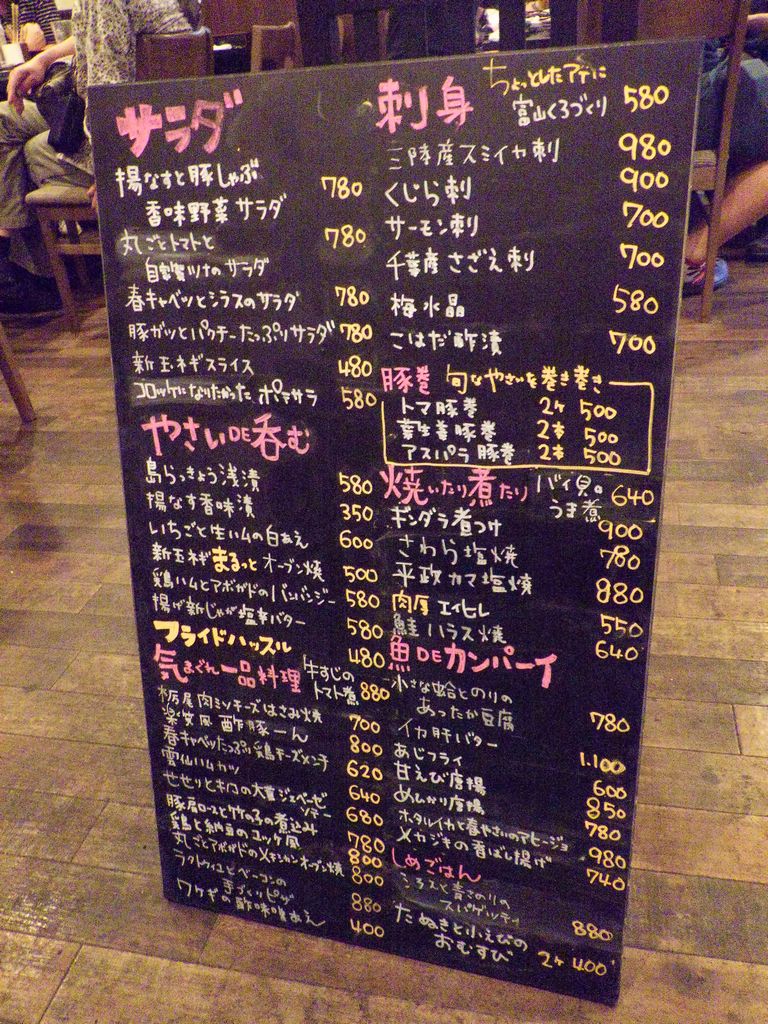 サラダ
揚なすと豚しゃぶ
香味野菜サラダ 780
丸ごとトマトと 780
自家製ツナのサラダ
春キャベツとシラスのサラダ 780
豚ガツとパクチーたっぷりサラダ 780
新玉ネギスライス 480
コロッケになりたかったポテサラ 580
やさいDE呑む
島らっきょう浅漬 580
揚なす香味漬 350
いちごと生ハムの白あえ 600
新玉ネギまるっとオーブン焼 500
鶏ハムとアボガドのバンバンジー 580
揚げ新じゃが塩辛バター 580
フライドハッスル 480
気まぐれ一品料理
牛すじの
トマト煮 880
栃尾肉ミソチーズはさみ焼 700
楽笑風酢豚ーん 800
春キャベツたっぷり鶏チーズメンチ 620
雲仙ハムカツ 640
せせりとキノコの大葉ジェノベーゼ
ソテー 680
豚肩ロースと竹の子の煮込み 780
鶏と納豆のユッケ風 800
丸ごとアボガドのメキシカンオーブン焼 800
ラタトゥイユとベーコンの
手づくりピザ 880
ワケギの酢味噌あえ 400
刺身
ちょっとしたアテに
富山くろづくり 580
三陸産スミイカ刺 980
くじら刺 900
サーモン刺 700
千葉産さざえ刺 700
梅水晶 580
こはだ酢漬 700
豚巻 旬なやさいを巻き巻き
トマ豚巻 2ヶ 500
葉生姜豚巻 2本 500
アスパラ豚巻 2本 500
焼いたり煮たり
バイ貝の
うま煮 640
ギンダラ煮つけ 900
さわら塩焼 780
平政カマ塩焼 880
肉厚エイヒレ 550
鮭ハラス焼 640
魚DEカンパーイ
小さな蛤とのりの
あったか豆腐 780
イカ肝バター 1.100
あじフライ 600
甘えび唐揚 850
めひかり唐揚 780
ホタルイカと春やさいのアヒージョ 980
メカジキの香ばし揚げ 740
しめごはん
しらすと青さのりの
スパゲッティ 880
たぬきと小えびの
おむすび 2ヶ 400